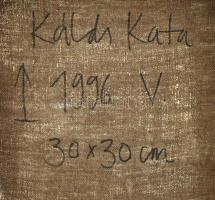 Káldi Kata
↑ 1996 V.
30x30 cm